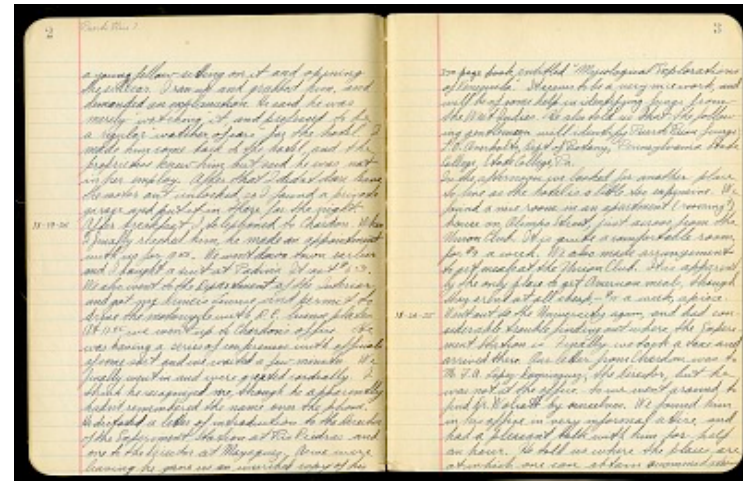 2
Puerto Rico
a young fellow sitting on it and opening
the siren. I ran up and grabbed him, and
demanded an explanation. He said he was
merely watching it, and professed to be
a regular watcher of cars for the hotel. I
made him come back to the hotel, and the
proprietress knew him but said he was not
in her employ. After that I didn't dare leave
the motor out unlocked, so I found a private
garage and put it in there for the night.
After breakfast I telephoned to Chardon. When
I finally reached him, he made an appointment
with us for We went down town earlier
and I bought a suit at Padin's
We also went to the Department of the Interior,
and got my driver's license and permit to
drive the motorcycle with license plates.
At we went up to Chardon's office. He
was having a series of conferences with officials
of some sort and we waited a few minutes. We
finally went in and were greeted cordially. I
think he recognized me, though he apparently
hadn't remembered the name over the phone.
He dictated a letter of introduction to the director
of the Experiment Station at Rio Piedras and
one to the director at Mayaguez. As we were
leaving he gave us an inscribed copy of his
3
page book entitled "Mycological Explorations
of Venezuela". It seems to be a very nice work, and
will be of some help in identifying fungi from
the West Indies. He also told us that the follow-
ing gentleman will identify Puerto Rican fungi:
L.O. Overholts, Dept. of Botany, Pennsylvania State
College, State College, Pa.
In the afternoon we looked for another place
to live as the hotel is a little too expensive. We
found a nice room in an apartment (rooming?)
house on Olimpo Street, just across from the
Union Club. It is quite a comfortable room,
for a week. We also made arrangements
to get meals at the Union Club. It is apparent-
ly the only place to get American meals, though
they aren't at all cheap a week, apiece.
Went out to the University again, and had con-
siderable trouble finding out where the Experi-
ment Station is. Finally we took a taxi and
arrived there. Our letter from Chardon was to
Mr. F.A. Lopez Dominguez, the director, but he
was not at the office. So we went around to
find Dr. by ourselves. We found him
in his office in very informal attire, and
had a pleasant talk with him for half
an hour. He told us where the places are
at which one can obtain